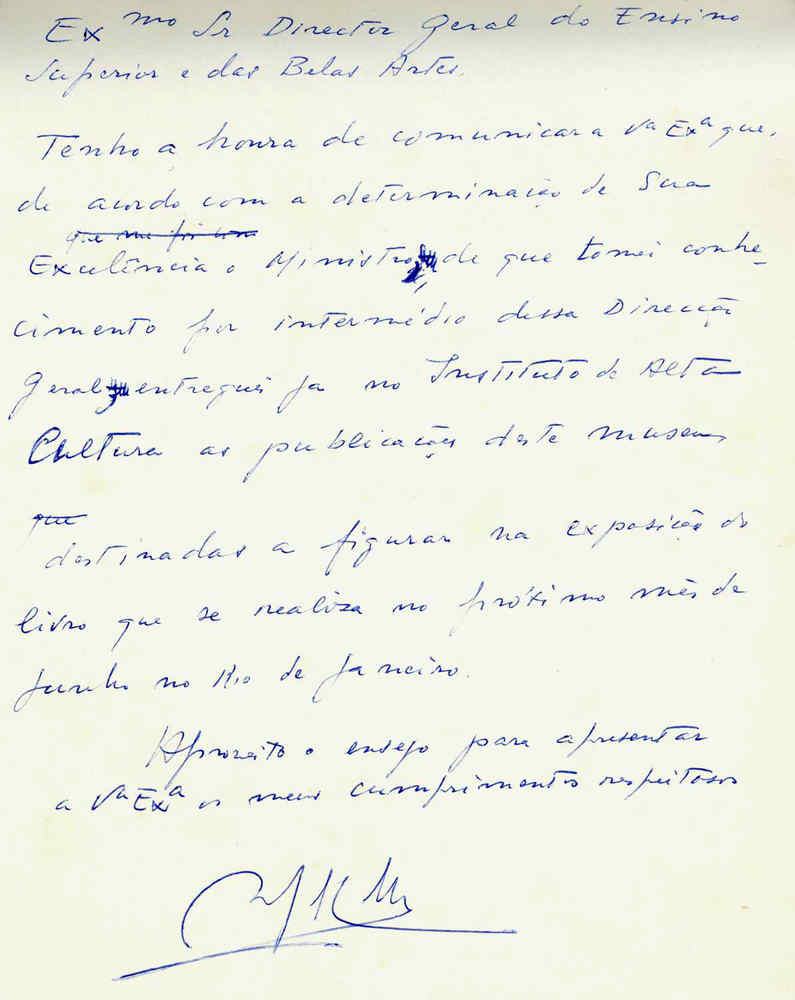 Ex mo Sr Director Geral do Ensino
Superior e das Belas Artes.
Tenho a honra de comunicar a Vª Exª que,
de acordo com a determinação de Sua
que me foi com
Excelência o Ministro, de que tomei conhe-
cimento por intermédio dessa Direcção
Geral, entreguei ja no Instituto de Alta
Cultura as publicações deste museu
que
destinadas a figurar na exposição do
livro que se realiza no próximo mês de
Junho no Rio de Janeiro.
Aproveito o ensejo para apresentar
a Vª Exª os meus cumprimentos respeitosos